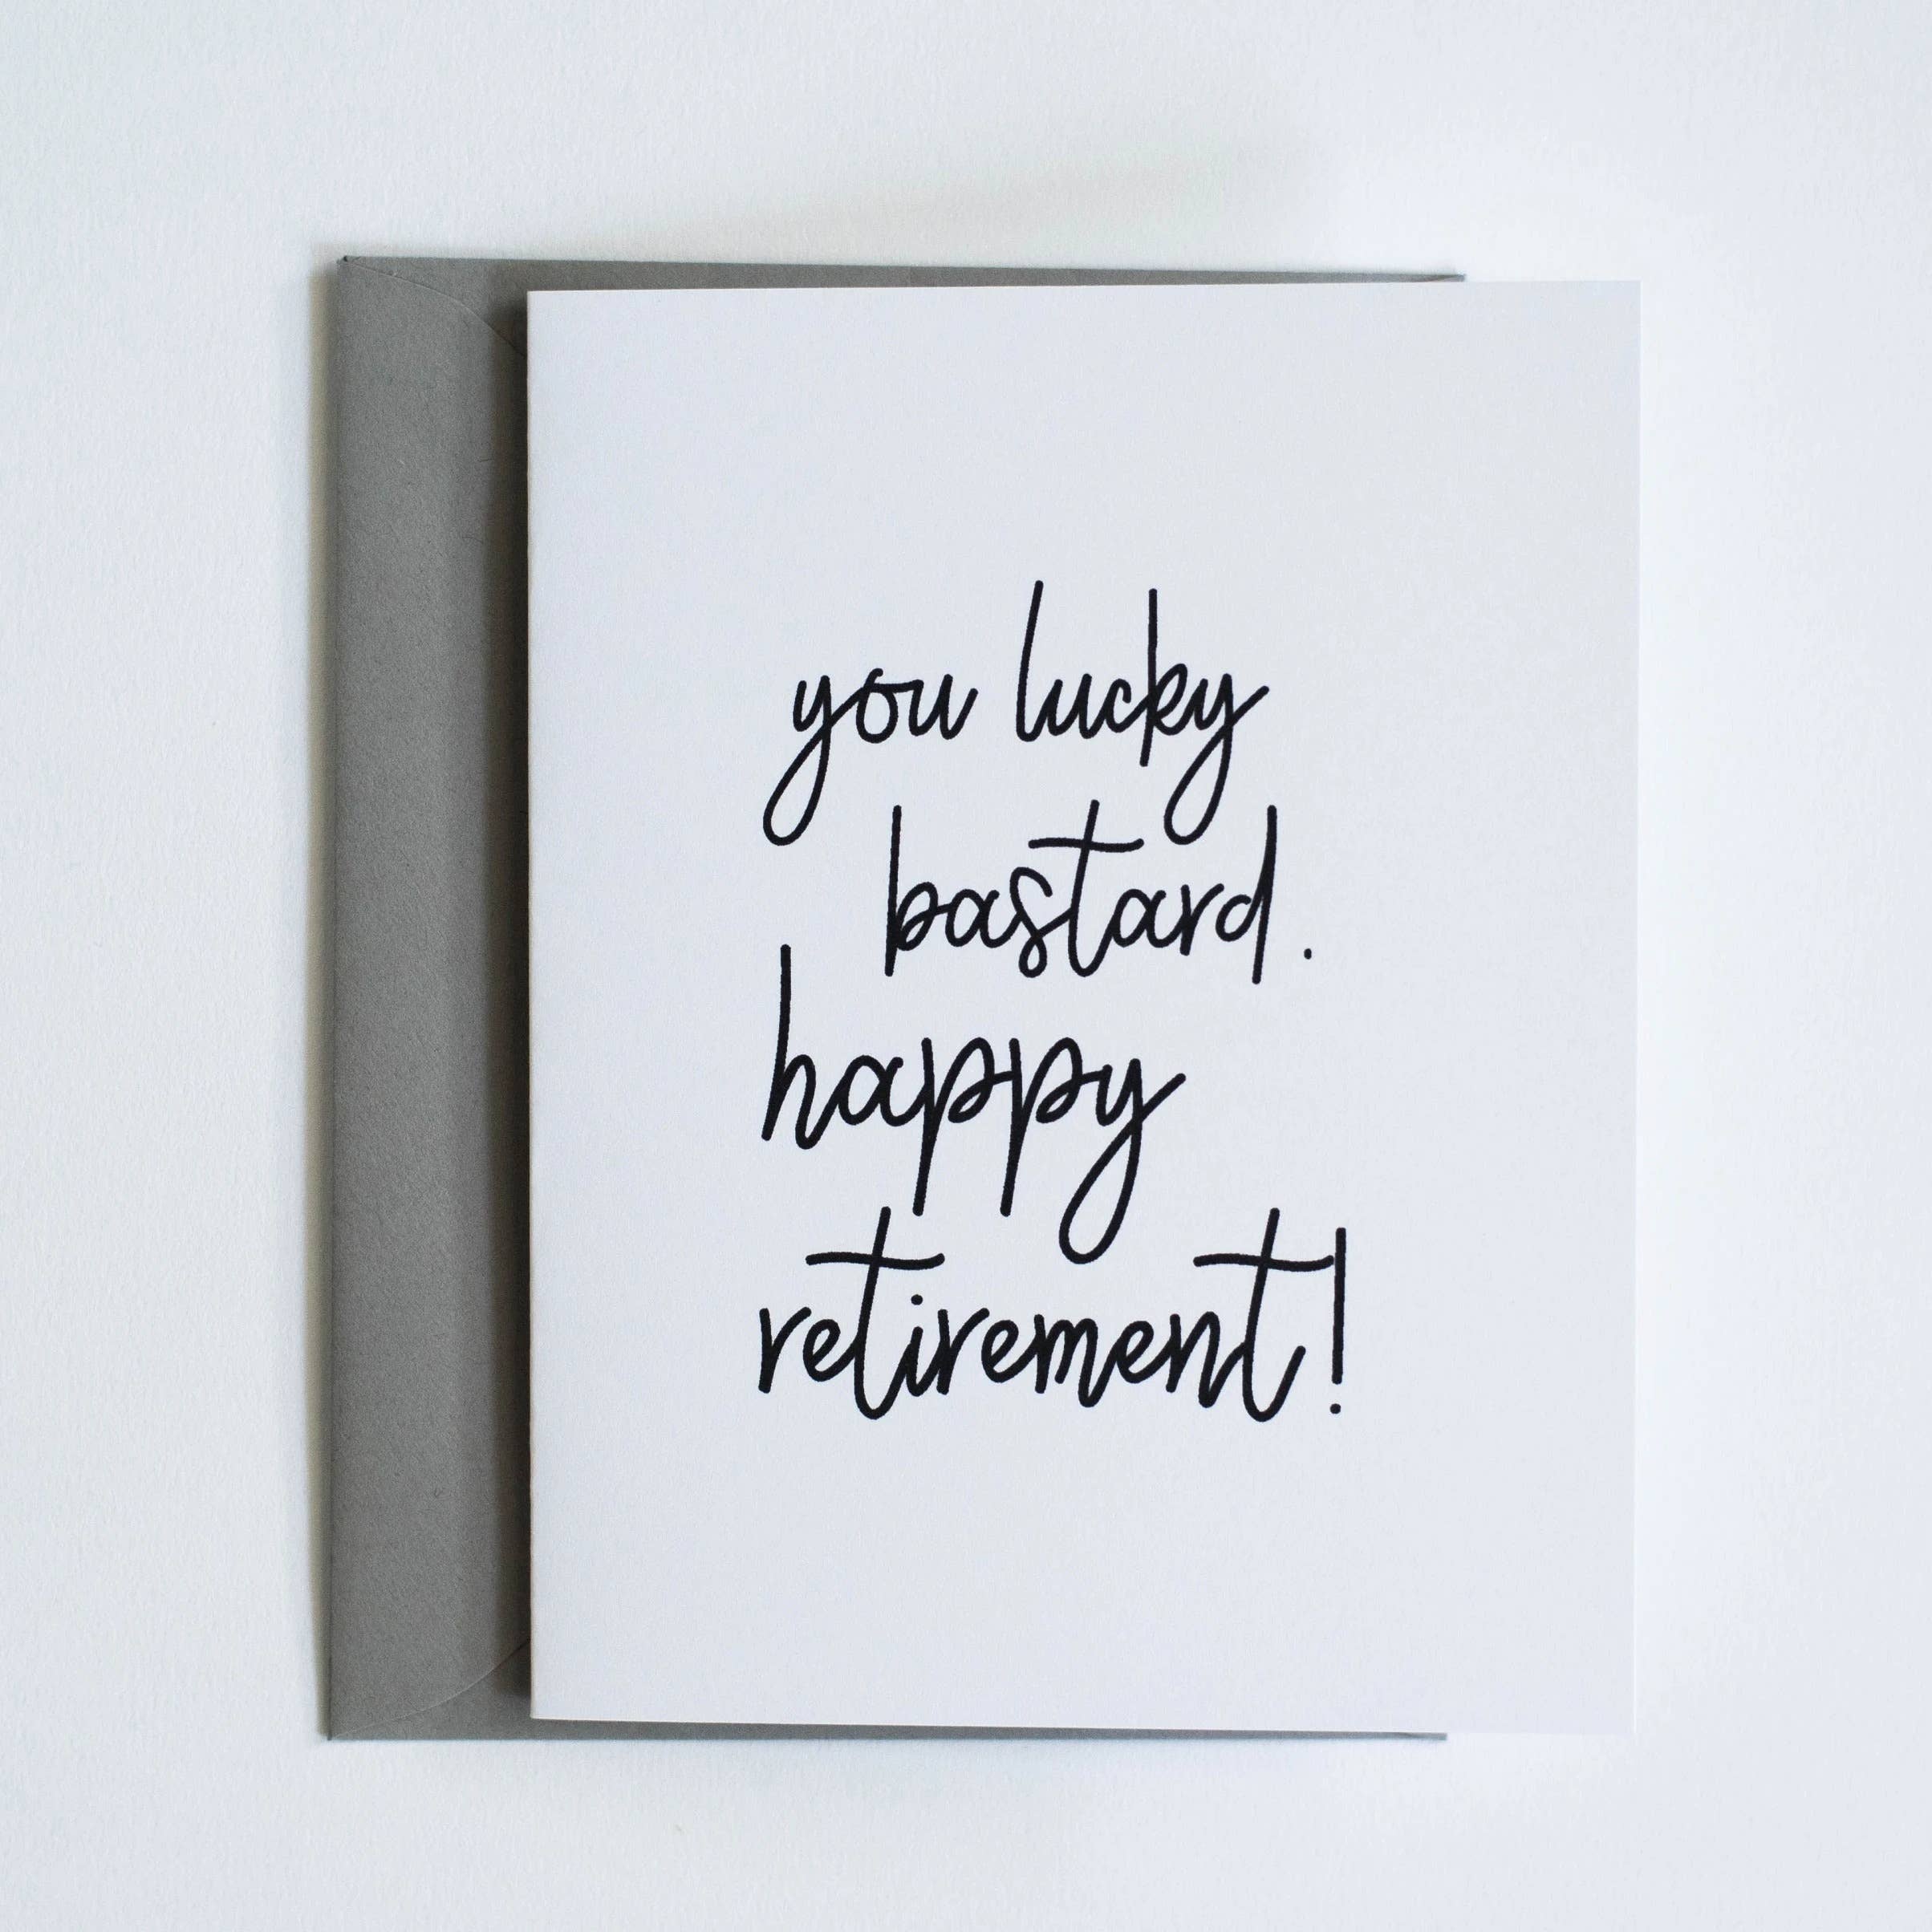 you lucky
bastard.
happy
retirement!